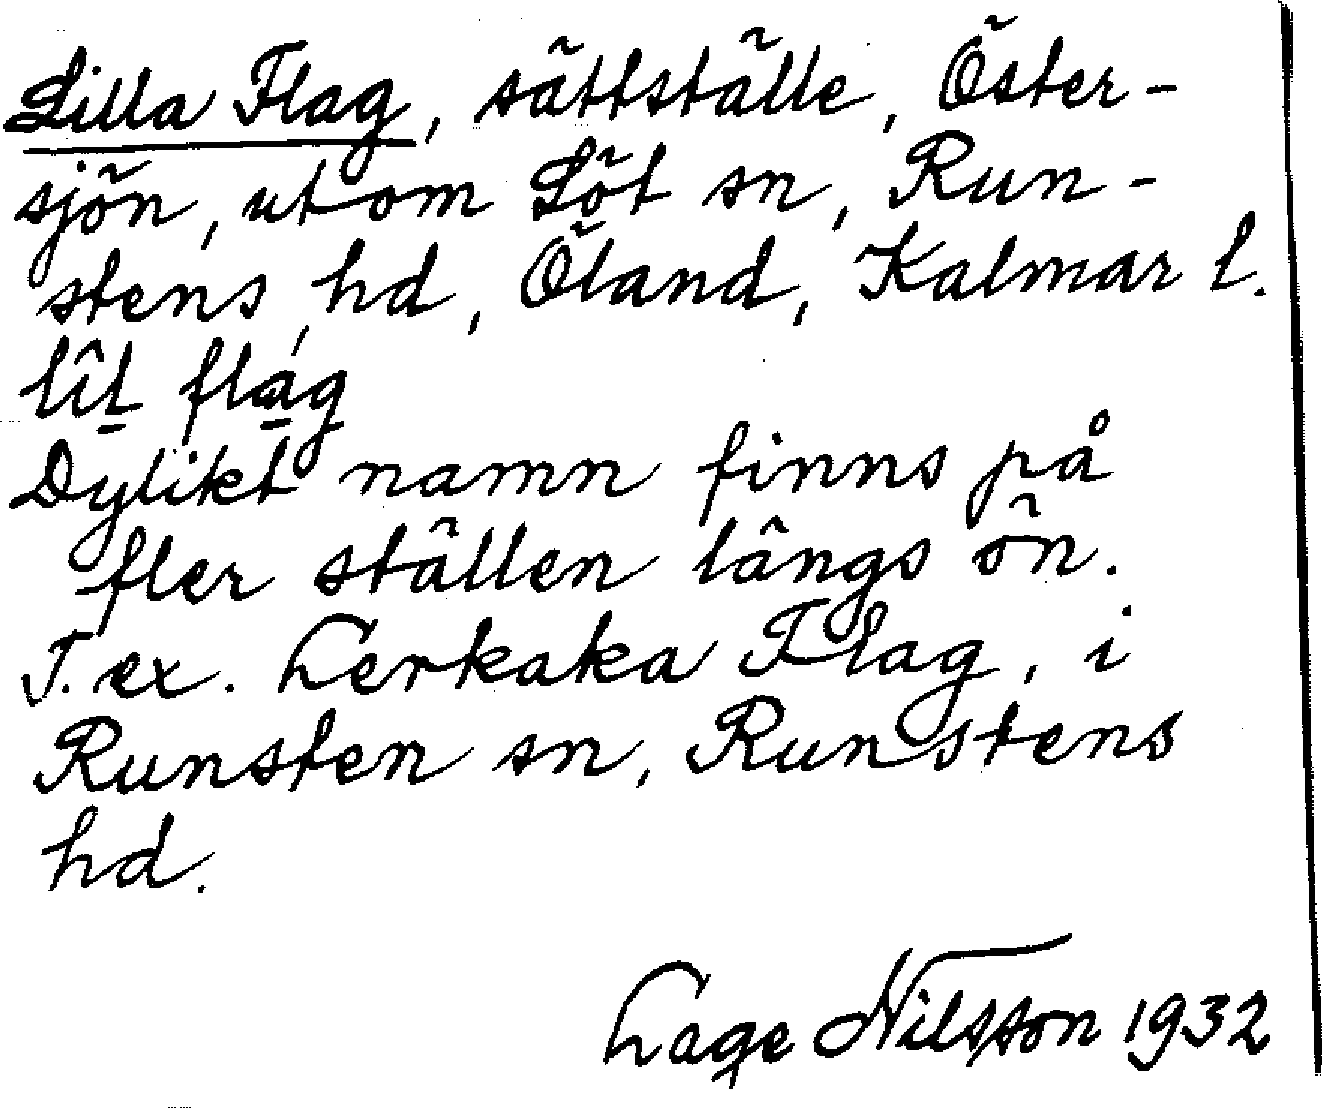 Lilla Flag, sättställe, Öster-
sjön, utom Löt sn, Run-
stens hd, Öland, Kalmar l.
lîl flág
Dylikt namn finns på
fler ställen längs ön.
T. ex. Lerkaka Flag, i
Runsten sn, Runstens
hd.
Lage Nilsson 1932